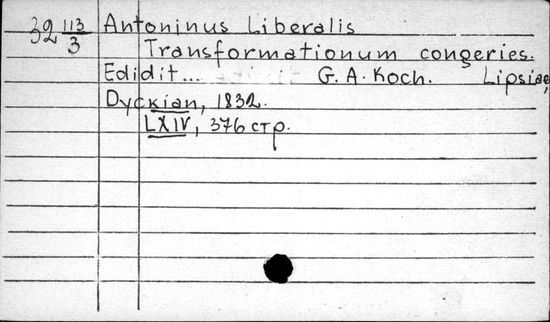 32 113/3 Antoninus Liberalis
Transformationum congeries.
Edidit... G. A. Koch. Lipsiae,
Дyckian, 1832.
LXIV, 376 стр.